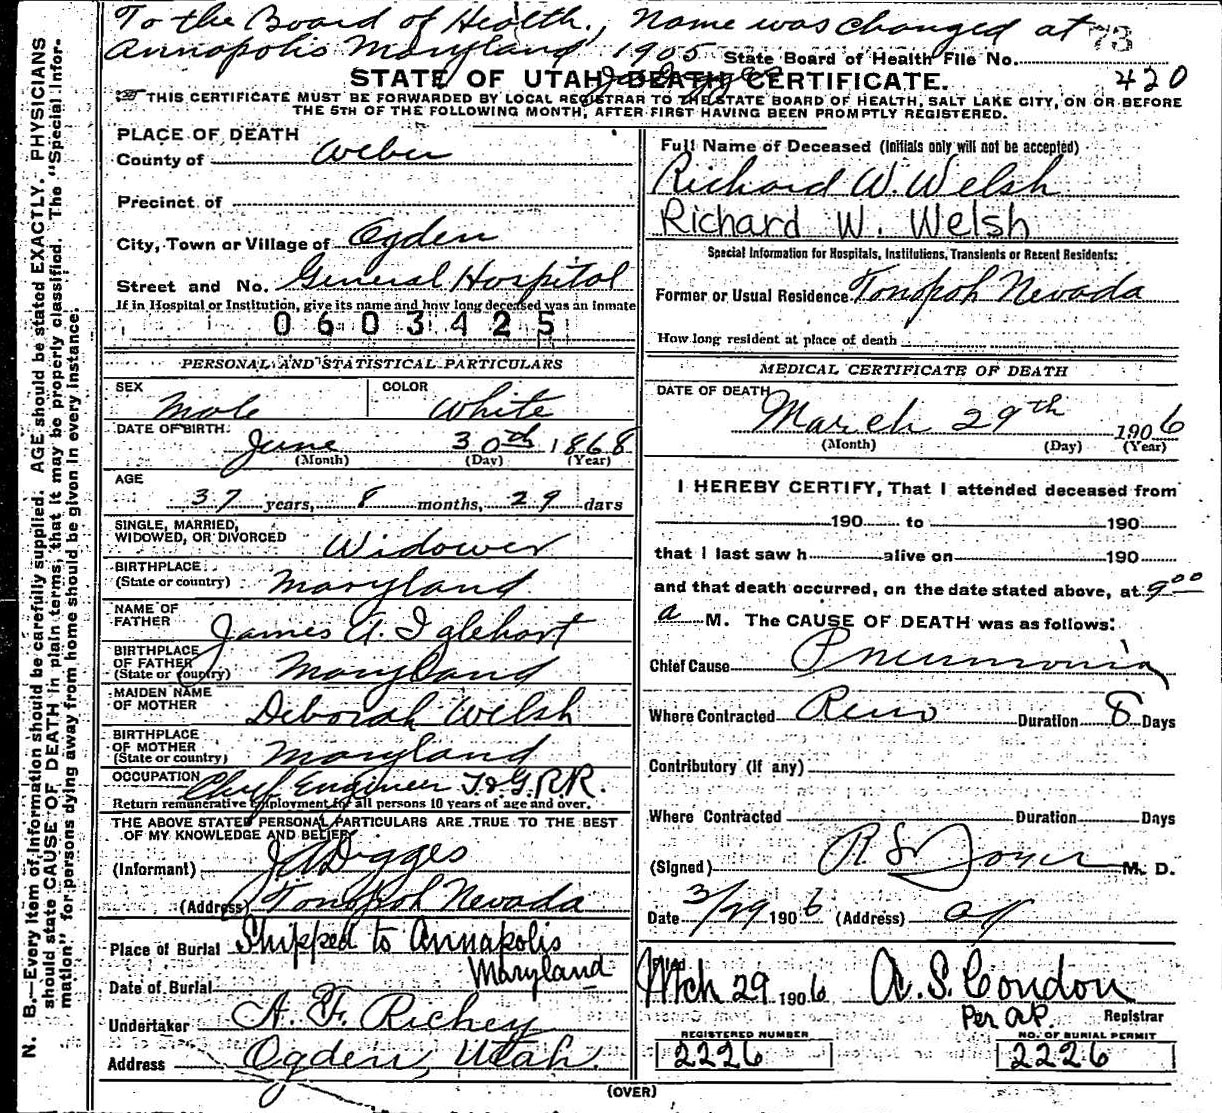 To the Board of Health., Name was changed at
Annapolis Maryland 1905
73
State Board of Health File No.
420
STATE OF UTAH—DEATH CERTIFICATE.
THIS CERTIFICATE MUST BE FORWARDED BY LOCAL REGISTRAR TO THE STATE BOARD OF HEALTH, SALT LAKE CITY, ON OR BEFORE
THE 5TH OF THE FOLLOWING MONTH, AFTER FIRST HAVING BEEN PROMPTLY REGISTERED.
N. B.—Every item of information should be carefully supplied. AGE should be stated EXACTLY. PHYSICIANS
should state CAUSE OF DEATH in plain terms, that it may be properly classified. The "Special Infor-
mation" for persons dying away from home should be given in every instance.
PLACE OF DEATH
County of Weber
Precinct of
City, Town or Village of Ogden
Street and No. General Hospital
If in Hospital or Institution, give its name and how long deceased was an inmate
0603425
PERSONAL AND STATISTICAL PARTICULARS
SEX Male COLOR White
DATE OF BIRTH June 30th 1868
(Month) (Day) (Year)
AGE
37 years, 8 months, 29 days
SINGLE, MARRIED,
WIDOWED, OR DIVORCED Widower
BIRTHPLACE
(State or country) Maryland
NAME OF
FATHER James A. Iglehart
BIRTHPLACE
OF FATHER
(State or country) Maryland
MAIDEN NAME
OF MOTHER Deborah Welsh
BIRTHPLACE
OF MOTHER
(State or country) Maryland
OCCUPATION Chief Engineer T. & G. R.R.
Return remunerative employment for all persons 10 years of age and over.
THE ABOVE STATED PERSONAL PARTICULARS ARE TRUE TO THE BEST
OF MY KNOWLEDGE AND BELIEF
(Informant) J A Digges
(Address) Tonopoh Nevada
Place of Burial Shipped to Annapolis
Maryland
Date of Burial
Undertaker A. F. Richey
Address Ogden, Utah.
Full Name of Deceased (Initials only will not be accepted)
Richard W. Welsh
Richard W. Welsh
Special Information for Hospitals, Institutions, Transients or Recent Residents:
Former or Usual Residence Tonopoh Nevada
How long resident at place of death
MEDICAL CERTIFICATE OF DEATH
DATE OF DEATH
March 29th 1906
(Month) (Day) (Year)
I HEREBY CERTIFY, That I attended deceased from
190 to 190
that I last saw h alive on 190
and that death occurred, on the date stated above, at 9 00
a M. The CAUSE OF DEATH was as follows:
Chief Cause Pneumonia
Where Contracted Reno Duration 8 Days
Contributory (if any)
Where Contracted Duration Days
(Signed) R S Joyce M. D.
Date 3/29 1906 (Address)
Filed
Mch 29 1906 A. S. Condon
Per AP. Registrar
REGISTERED NUMBER NO. OF BURIAL PERMIT
2226 2226
(OVER)